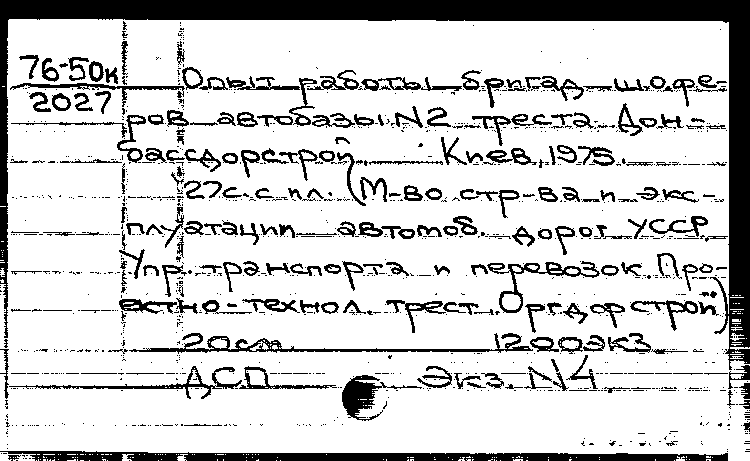 76-50к
2027
Опыт работы бригад шофе-
ров автобазы N2 треста Дон-
бассдорстрой. Киев, 1975.
27с. с ил. (М-во стр-ва и экс-
плуатации автомоб. дорог УССР.
Упр. транспорта и перевозок. Про-
ектно-технол. трест "Оргдорстрой")
20см. 1200экз
ДСП Экз. N4